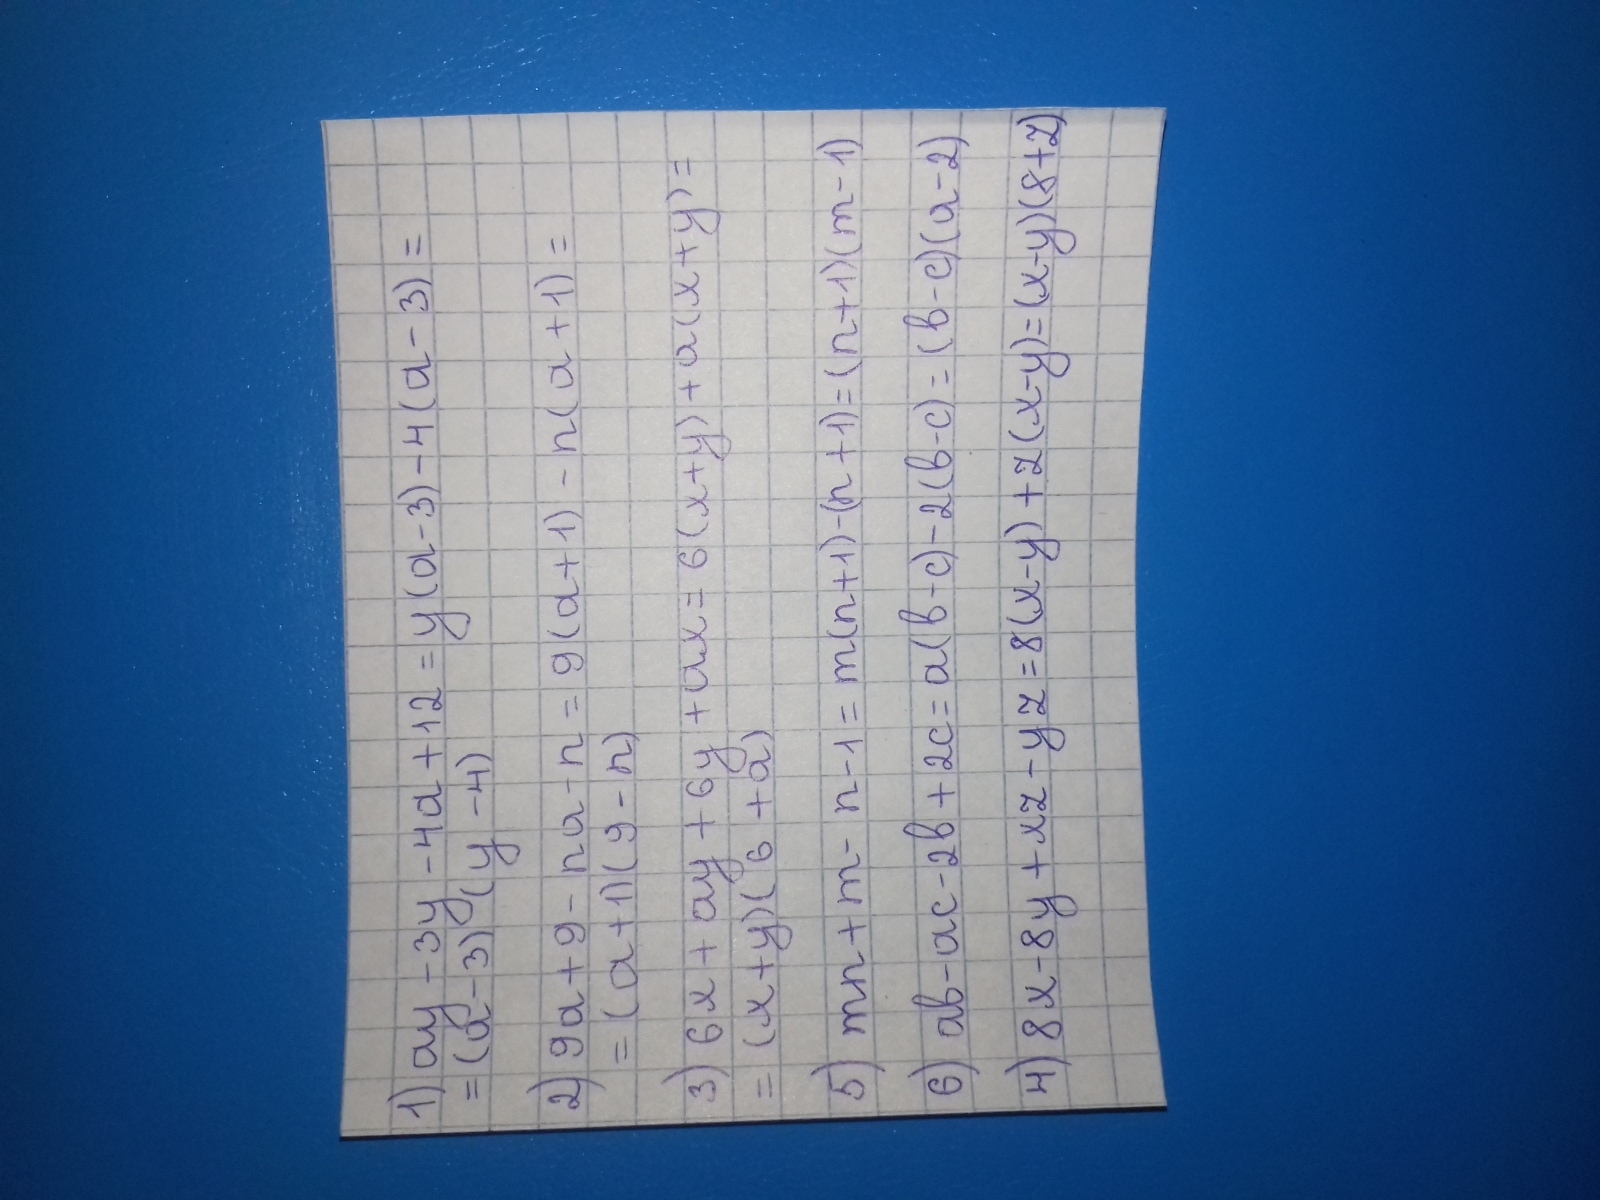 1) ay - 3y - 4a + 12 = y(a - 3) - 4(a - 3) =
= (a - 3)(y - 4)
2) 9a + 9 - na - n = 9(a + 1) - n(a + 1) =
= (a + 1)(9 - n)
3) 6x + ay + 6y + ax = 6(x + y) + a(x + y) =
= (x + y)(6 + a)
5) mn + m - n - 1 = m(n + 1) - (n + 1) = (n + 1)(m - 1)
6) ab - ac - 2b + 2c = a(b - c) - 2(b - c) = (b - c)(a - 2)
4) 8x - 8y + xz - yz = 8(x - y) + z(x - y) = (x - y)(8 + z)